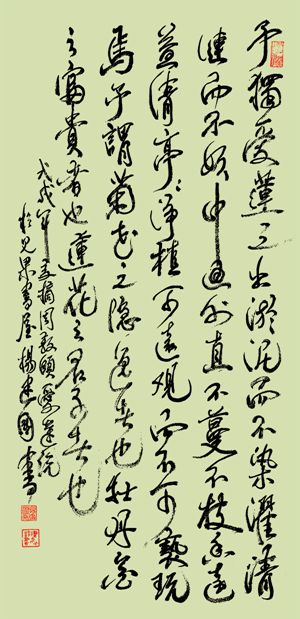 予獨愛蓮之出淤泥而不染濯清
漣而不妖中通外直不蔓不枝香遠
益清亭亭淨植可遠觀而不可褻玩
焉予謂菊花之隱逸者也牡丹花
之富貴者也蓮花之君子者也
戊戌年夏摘周敦頤愛蓮說
於見泉書屋楊建國書